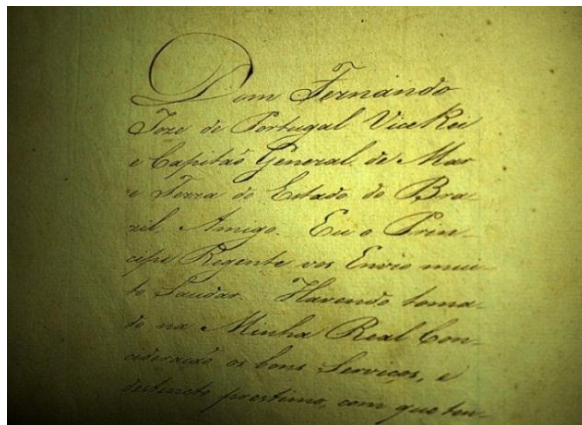 Dom Fernando
Joze de Portugal Vice Rei
e Capitaõ General de Mar
e Terra do Estado do Bra-
zil. Amigo. Eu o Prin-
cipe Regente vos Envio mui-
to Saudar. Havendo toma-
do na Minha Real Con-
sideraçaõ os bons Serviços, e
destincto prestimo, com que ten-